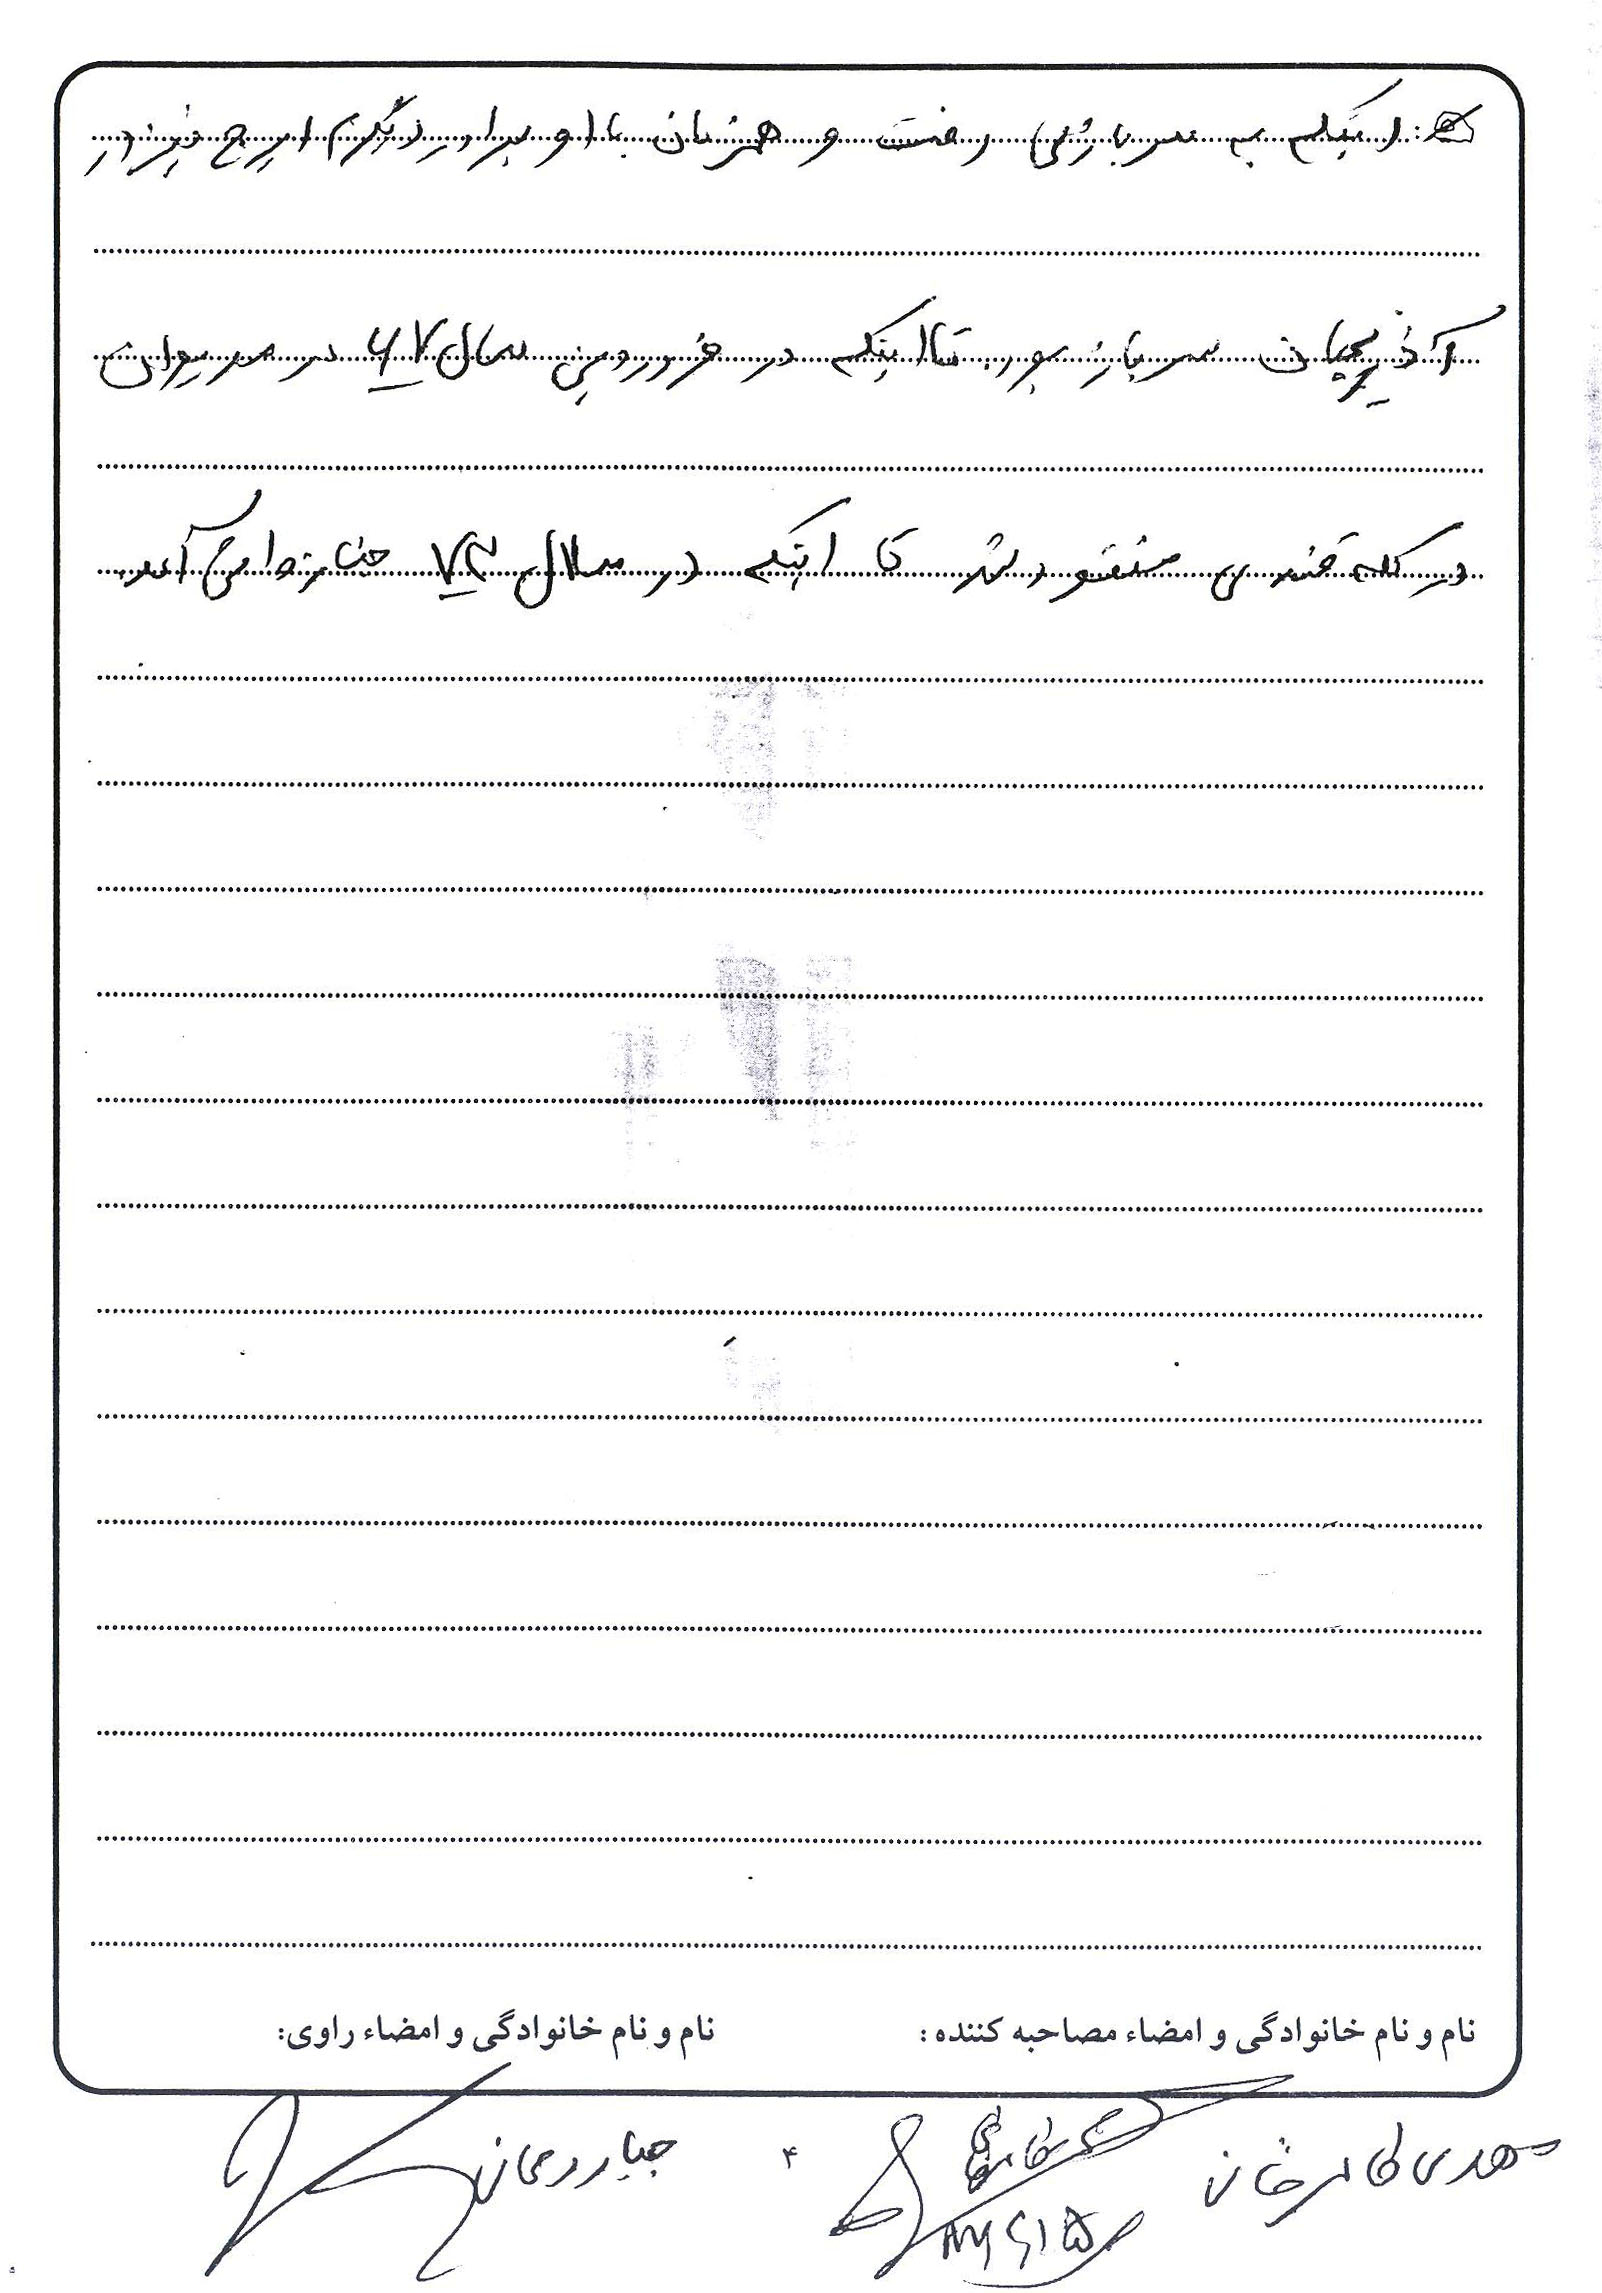 اینکه به سربازی رفت و همزمان با او برادر دیگرم ایرج نیز در
آذربایجان سرباز بود. تا اینکه در فروردین سال ۶۷ در مریوان
در کله قندی مفقود شد تا اینکه در سال ۷۴ جنازه اش آمد.
نام و نام خانوادگی و امضاء مصاحبه کننده :
نام و نام خانوادگی و امضاء راوی:
مهدی طاهرخانی
۴
جبار رحمانی